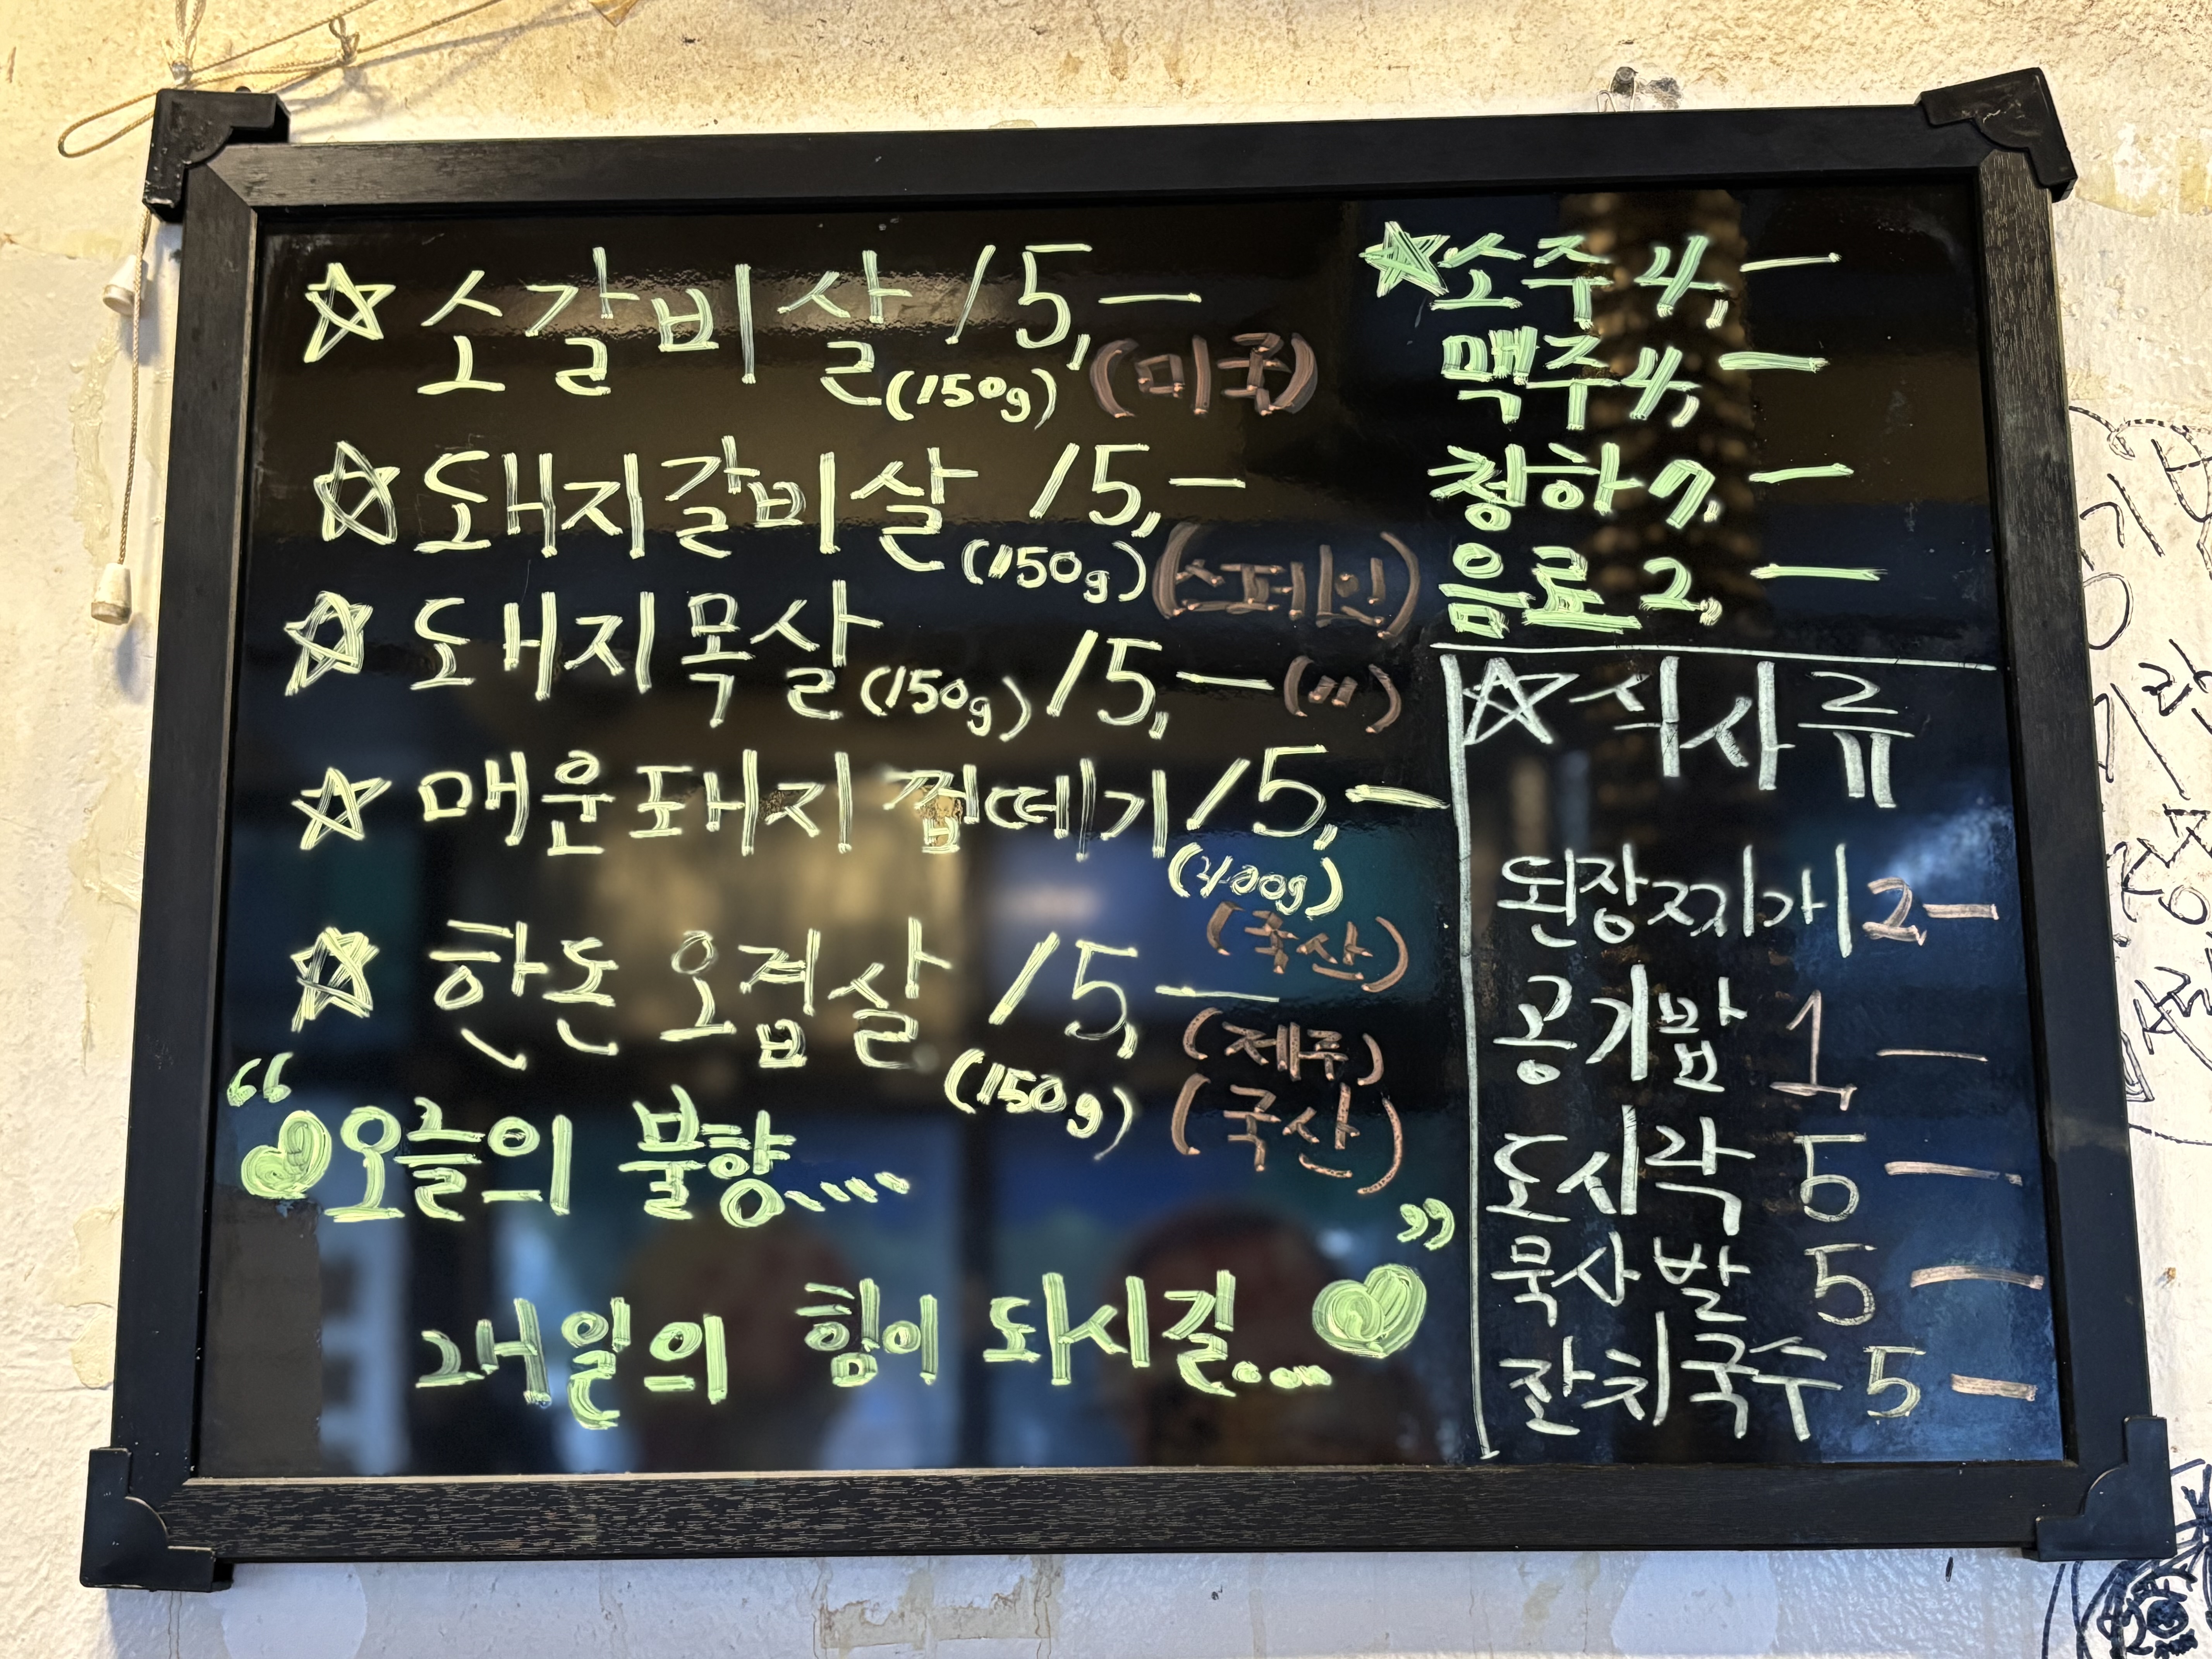 ☆ 소갈비살 15,—
(150g) (미국)
☆ 돼지갈비살 15,—
(150g) (스페인)
☆ 돼지목살 (150g) 15,— (〃)
☆ 매운돼지껍떼기 15,—
(400g)
(국산)
☆ 한돈 오겹살 15,—
(150g) (제주)
(국산)
“오늘의 불향....
내일의 힘이 되시길....”
☆소주 4,—
맥주 4,—
청하 7,—
음료 2,—
☆식사류
된장찌개 2,—
공기밥 1,—
도시락 5—
묵사발 5—
잔치국수 5—